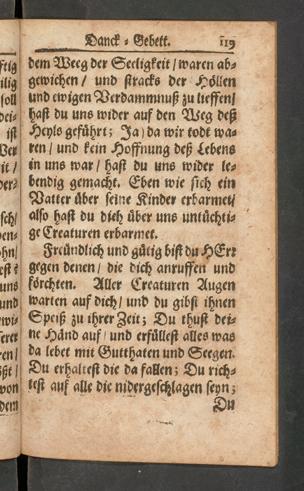 Danck-Gebett. 119
dem Weeg der Seeligkeit / waren ab-
gewichen / und stracks der Höllen
und ewigen Verdamnnuß zu lieffen /
hast du uns wider auf den Weg deß
Heyls geführt; Ja / da wir todt wa-
ren / und kein Hoffnung deß Lebens
in uns war / hast du uns wider le-
bendig gemacht. Eben wie sich ein
Vatter über seine Kinder erbarmet /
also hast du dich über uns untüchti-
ge Creaturen erbarmet.
Freündlich und gütig bist du HErr
gegen denen / die dich anruffen und
förchten. Aller Creaturen Augen
warten auf dich / und du gibst ihnen
Speiß zu ihrer Zeit; Du thust dei-
ne Händ auf / und erfüllest alles was
da lebet mit Gutthaten und Seegen.
Du erhaltest die da fallen; Du rich-
test auf alle die nidergeschlagen seyn;
Du